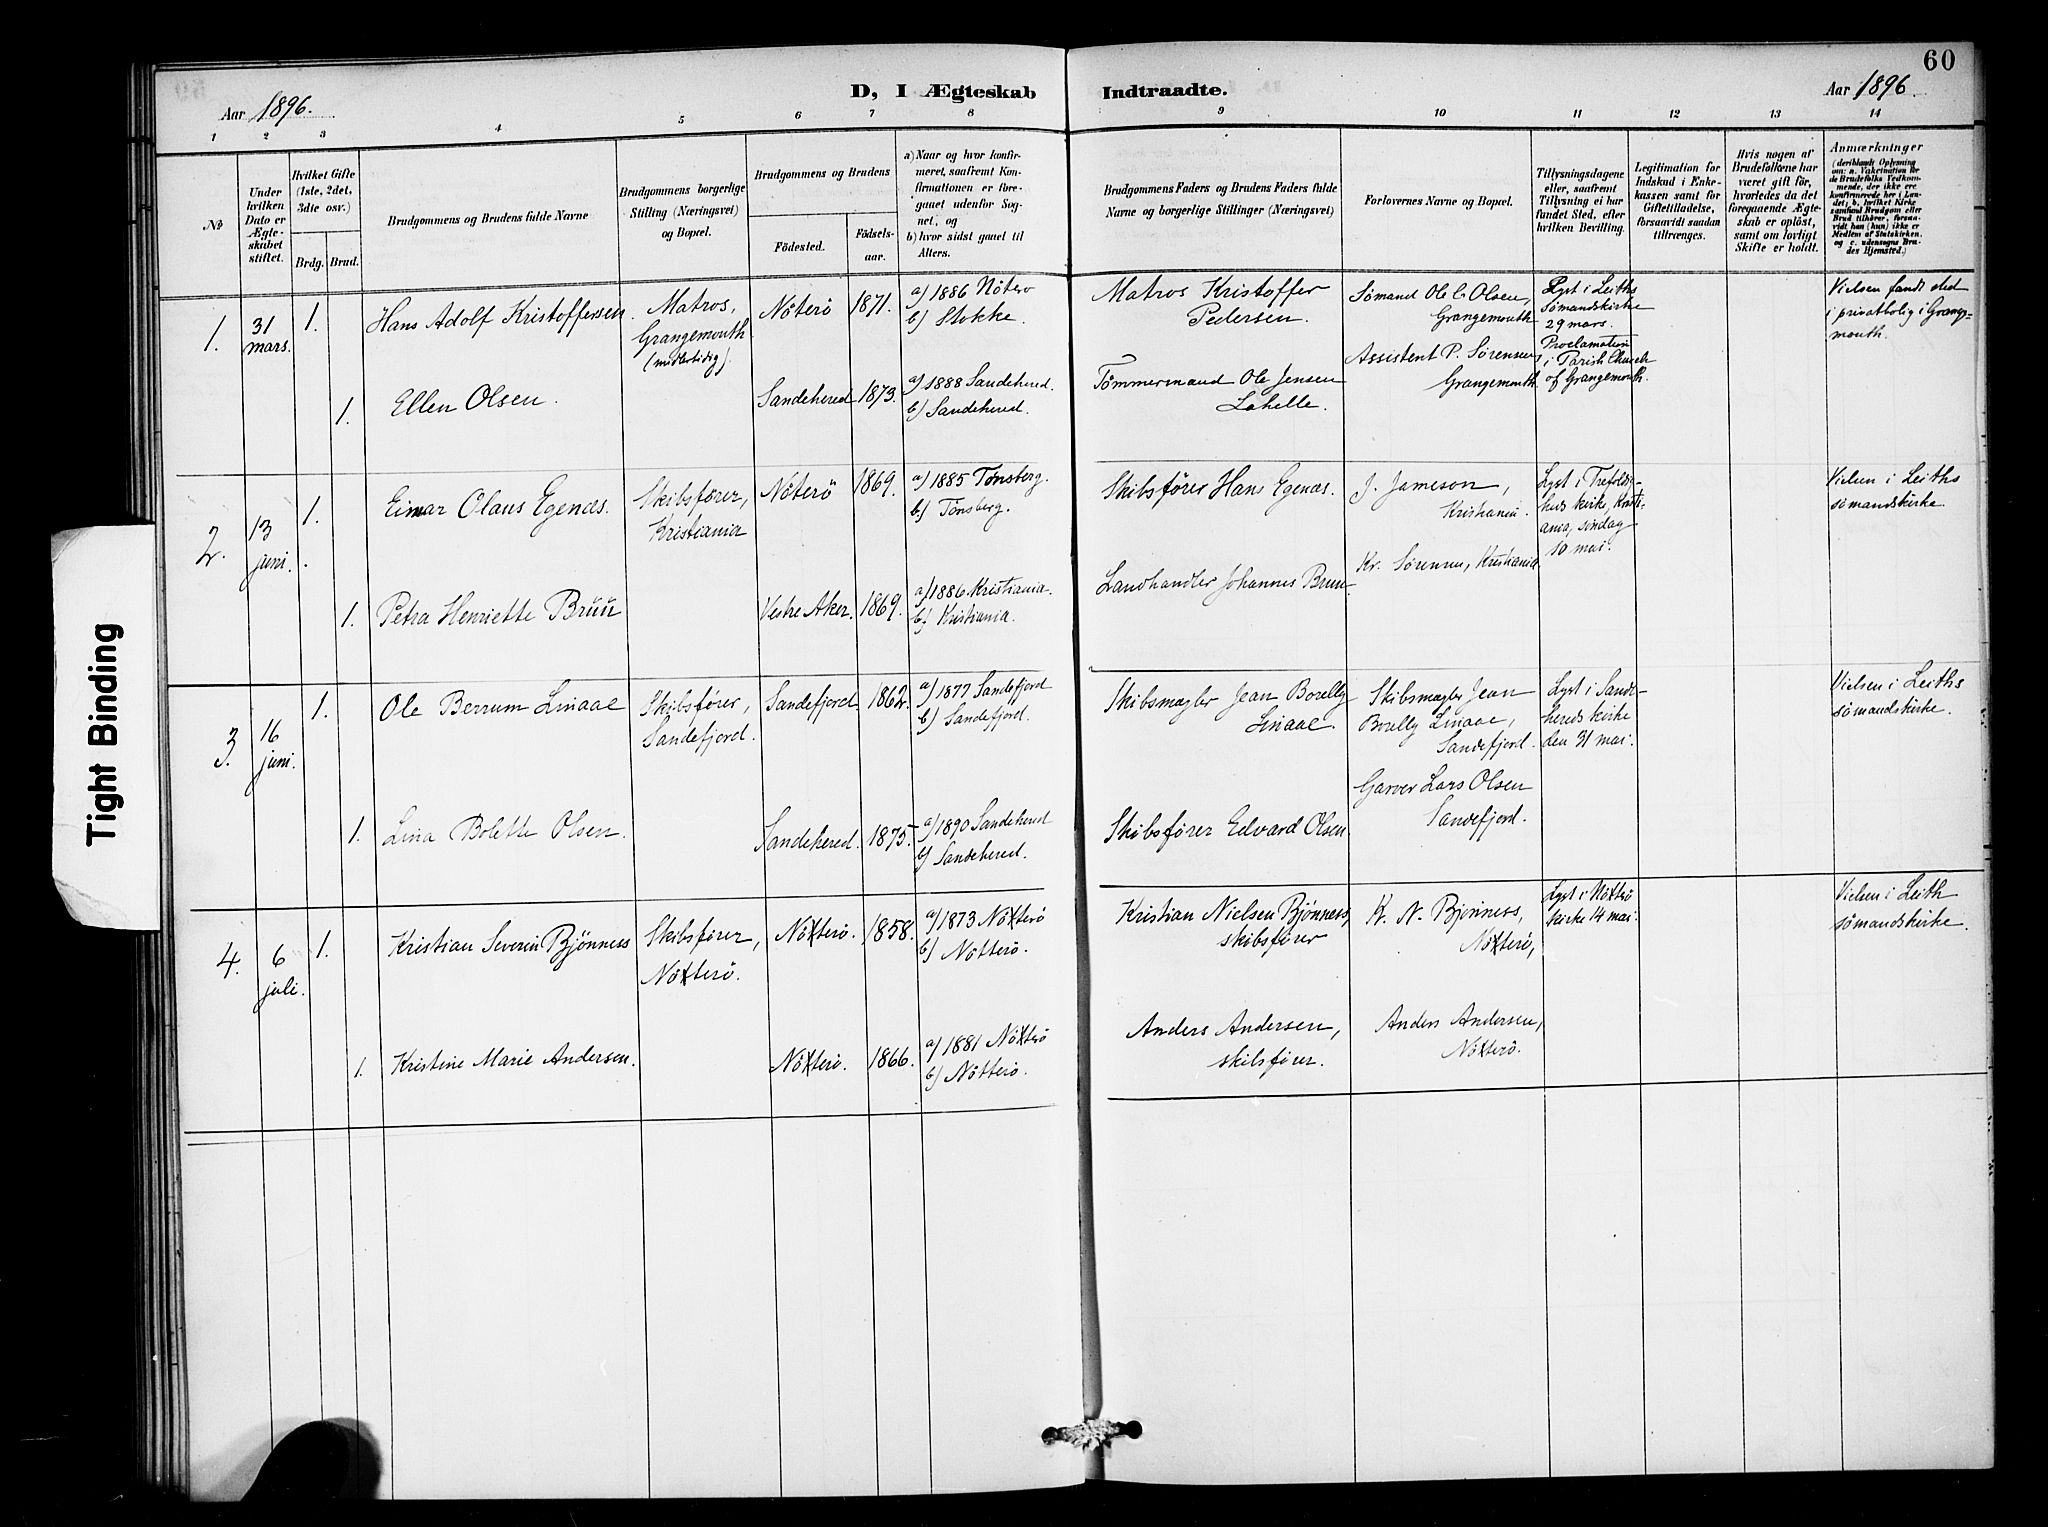 60
Aar 1896.
D, I Ægteskab Indtraadte.
Aar 1896.
1 2 3 4 5 6 7 8 9 10 11 12 13 14
№
Under
hvilken
Dato er
Ægte-
skabet
stiftet.
Hvilket Gifte
(1ste, 2det,
3dte osv.)
Brdg.
Brud.
Brudgommens og Brudens fulde Navne
Brudgommens borgerlige
Stilling (Næringsvei)
og Bopæl.
Brudgommens og Brudens
Födested.
Födsels-
aar.
a) Naar og hvor konfir-
meret, saafremt Kon-
firmationen er fore-
gaaet udenfor Sog-
net, og
b) hvor sidst gaaet til
Alters.
Brudgommens Faders og Brudens Faders fulde
Navne og borgerlige Stillinger (Næringsvei)
Forlovernes Navne og Bopæl.
Tillysningsdagene
eller, saafremt
Tillysning ei har
fundet Sted, efter
hvilken Bevilling.
Legitimation for
Indskud i Enke-
kassen samt for
Giftetilladelse,
forsaavidt saadan
tiltrænges.
Hvis nogen af
Brudefolkene har
været gift för,
hvorledes da det
foregaaende Ægte-
skab er oplöst,
samt om lovligt
Skifte er holdt.
Anmærkninger
(deriblandt Oplysning
om: a. Vakcination for
de Brudefolks Vedkom-
mende, der ikke ere
konfirmerede her i Lan-
det; b. hvilket Kirke
samfund Brudgom eller
Brud tilhörer, forsaa-
vidt han (hun) ikke er
Medlem af Statskirken,
og c. udensogns Bru-
des Hjemsted.)
1.
31
mars.
1.
Hans Adolf Kristoffersen.
Matros,
Grangemouth
(midlertidig).
Nöterö
1871.
a) 1886 Nöterö
b) Stokke.
Matros Kristoffer
Pedersen.
Sømand Ole C. Olsen,
Grangemouth
Assistent P. Sørensen,
Grangemouth
Lyst i Leiths
Sømandskirke
29 mars.
Proclamation
i Parish Church
of Grangemouth.
Vielsen fandt sted
i privatbolig i Grange-
mouth.
1.
Ellen Olsen.
Sandehered
1873.
a) 1888 Sandehered.
b) Sandehered.
Tømmermand Ole Jensen
Lahelle.
2.
13
juni.
1.
Einar Olaus Egenæs.
Skibsfører,
Kristiania
Nöterö
1869.
a) 1885 Tønsberg.
b) Tönsberg.
Skibsfører Hans Egenæs.
J. Jameson,
Kristiania.
Kr. Sørensen, Kristiania
Lyst i Trefoldig-
heds kirke, Kristi-
ania, søndag
10 mai.
Vielsen i Leiths
sömandskirke
1.
Petra Henriette Bruun
Vestre Aker.
1869.
a) 1886 Kristiania.
b) Kristiania.
Landhandler Johannes Bruun.
3.
16
juni.
1.
Ole Berrum Linaae
Skibsfører,
Sandefjord.
Sandefjord
1862.
a) 1877 Sandefjord
b) Sandefjord.
Skibsmægler Jean Borelly
Linaae.
Skibsmægler Jean
Borelly Linaae,
Sandefjord.
Garver Lars Olsen
Sandefjord.
Lyst i Sande-
hereds kirke
den 31 mai.
Vielsen i Leiths
sömandskirke.
1.
Lina Bolette Olsen.
Sandehered.
1875.
a) 1890 Sandehered
b) Sandehered.
Skibsfører Edvard Olsen
4.
6
juli.
1.
Kristian Severin Bjönness
Skibsfører,
Nötterö.
Nötterö.
1858.
a) 1873 Nötterö
b) Nötterö.
Kristian Nielsen Bjönness,
skibsfører
K. N. Bjønness,
Nötterö,
Lyst i Nötterö
kirke 14 mai.
Vielsen i Leith
sömandskirke.
1.
Kristine Marie Andersen.
Nötterö.
1866.
a) 1881 Nötterö
b) Nötterö.
Anders Andersen,
skibsfører.
Anders Andersen,
Nötterö.
Tight Binding